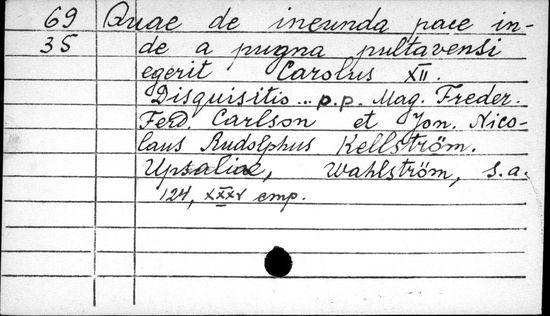 69 Quae de ineunda pace in-
35 de a pugna pultavensi
egerit Carolus XII.
Disquisitio... p.p. Mag. Freder.
Ferd. Carlson et Jon. Nico-
laus Rudolphus Kellström.
Upsaliae, Wahlström, s.a.
124, XXXV стр.